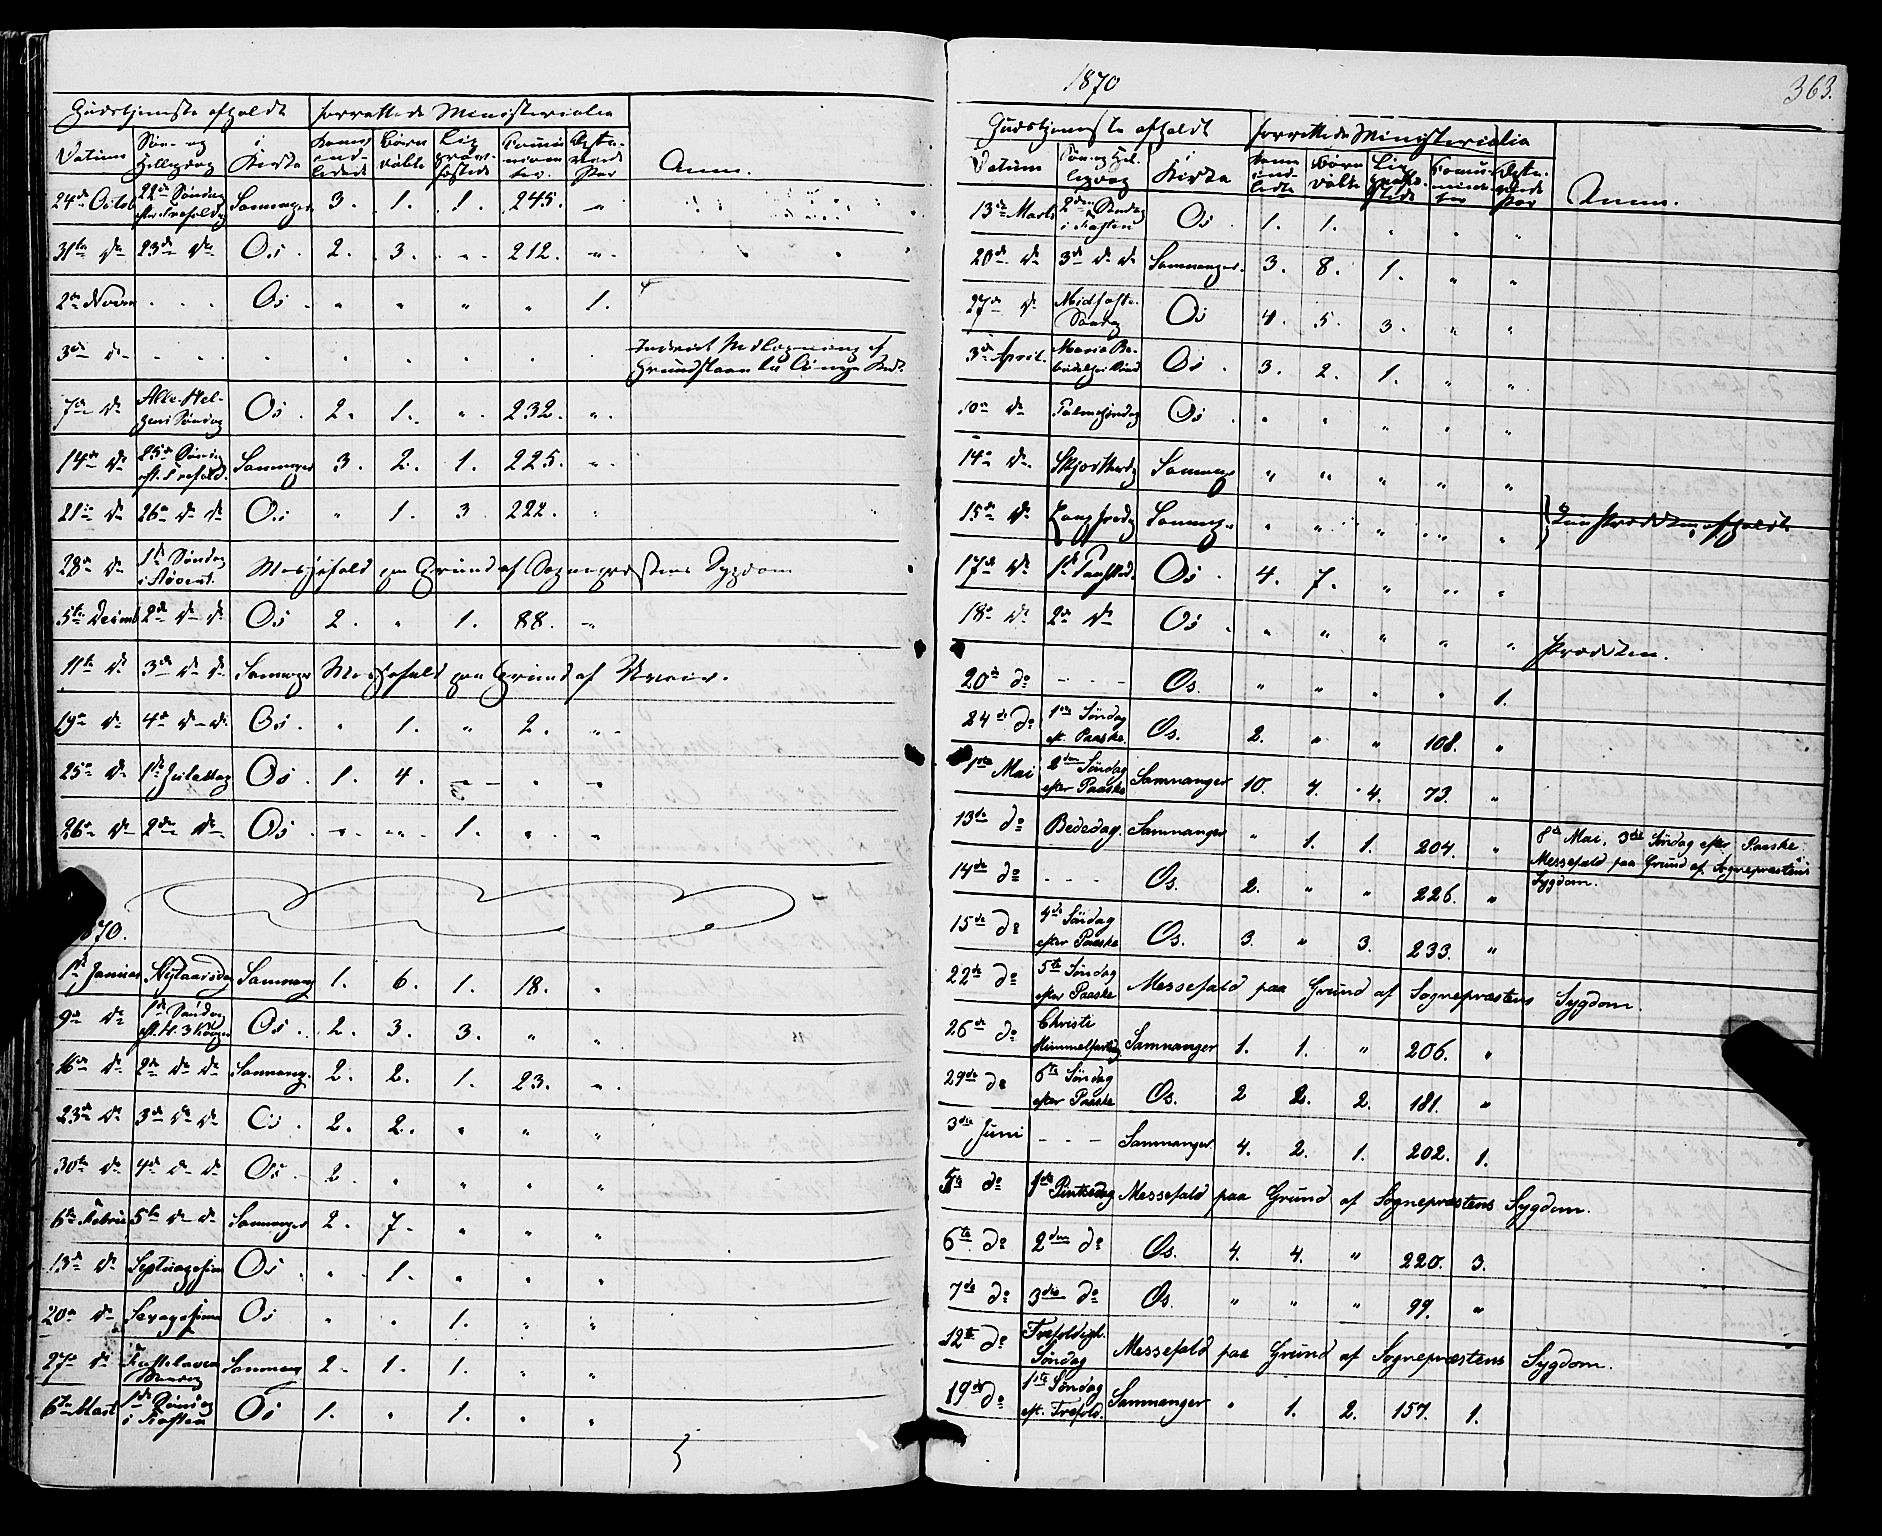 Gudstjeneste afholdt forrettede Ministerialia
Datum Søn- og Helligdag i Kirke Koner indledede Børn døbte Lig jordfæstede Communicanter Ægteviede Par Anm.
24de Octob 22de Søndag eft. Trefoldg Samnanger 3. 1. 1. 245. „
31te do 23de do Os 2. 3. „ 212. „
2den Novem - - - Os „ „ „ „ 1.
3die do - - - Indviet Nedlægning af Grundsteen til Os nye Kirke
7de do Alle Helgens Søndag Os 2. 1. „ 232. „
14de do 25de Sønd. eft. Trefold. Samnanger 3. 2. 1. 225. „
21de do 26de do do Os „ 1. 3. 222. „
28de do 1ste Søndag i Advent. Messefald paa Grund af Sognepræstens Sygdom
5te Decemb 2de do do Os 2. „ 1. 88. „
11te do 3de do do Samnanger Messefald paa Grund af Uveir.
19de do 4de do do Os „ 1. „ 2. „
25de do 1ste Juledag Os 1. 4. „ „ „
26de do 2den do Os „ „ 1. „ „
1870.
1ste Januar Nytaarsdag Samnang 1. 6. 1. 18. „
9de do 1ste Søndag eft. H. 3 Konger Os 2. 3. 3. „ „
16de do 2de do do Samnang. 2. 2. 1. 23. „
23de do 3de do do Os 2. 2. „ „ „
30te do 4de do do Os 2. „ „ „ „
6te Februar 5te do do Samnanger 2. 7. „ „ „
13de do Septuagesima Os „ 1. „ „ „
20de do Sexagesima Os „ „ 1. „ „
27de do Fastelavns Søndag Samnang 2. 1. 1. „ „
6te Mart 1ste Søndag i Fasten Os 1. „ 1. „ „
1870
363.
Gudstjeneste afholdt forrettede Ministerialia
Datum Søn og Helligdag Kirke Koner indledte Børn døbte Lig jordfæstede Communicanter Ægteviede Par Anm.
13de Marts 2den Søndag i Fasten Os 1. 1. „ „ „
20de do 3de do do Samnanger. 3. 8. 1. „ „
27de do Midfaste Søndag Os 4. 5. 3. „ „
3de April. Maria Bebudelses Sønd Os 3. 2. 1. „ „
10de do Palmesøndag Os „ „ „ „ „
14de do Skjærthorsdg Samnang „ „ „ „ „
15de do Langfredag Samnang. „ „ „ „ „
17de do 1ste Paaskedag Os 4. 7. „ „ „
18de do 2den do Os „ „ „ „ „ Prædiken.
20de do - - - Os. „ „ „ „ 1.
24de do 1ste Søndag eft. Paaske. Os. 2. „ „ 108. „
1ste Mai 2den Søndag efter Paaske Samnanger 10. 4. 4. 73. „
13de do Bededag. Samnanger „ 1. 1. 204. „ 8de Mai, 3die Søndag efter Paaske Messefald paa Grund af Sognepræstens Sygdom.
14de do - - - Os. 2. „ „ 226. „
15de do 4de Søndag efter Paaske Os. 3. „ 3. 233. „
22de do 5te Søndag efter Paaske Messefald paa Grund af Sognepræstens Sygdom.
26de do Christi Himmelfartsdag Samnanger 1. 1. „ 206. „
29de do 6te Søndag efter Paaske Os. 2 2. 2. 181. „
3die Juni - - - Samnanger 4. 2. 1. 202. 1.
5te do 1ste Pintsedag Messefald paa Grund af Sognepræstens Sygdom.
6te do 2den do Os. 4. 4. „ 220. 3.
7de do 3die do Os. „ „ „ 99. „
12te do Trefoldigh. Søndag Messefald paa Grund af Sognepræstens Sygdom.
19de do 1ste Søndag eft. Trefold. Samnanger „ 1. 2. 157. 1.